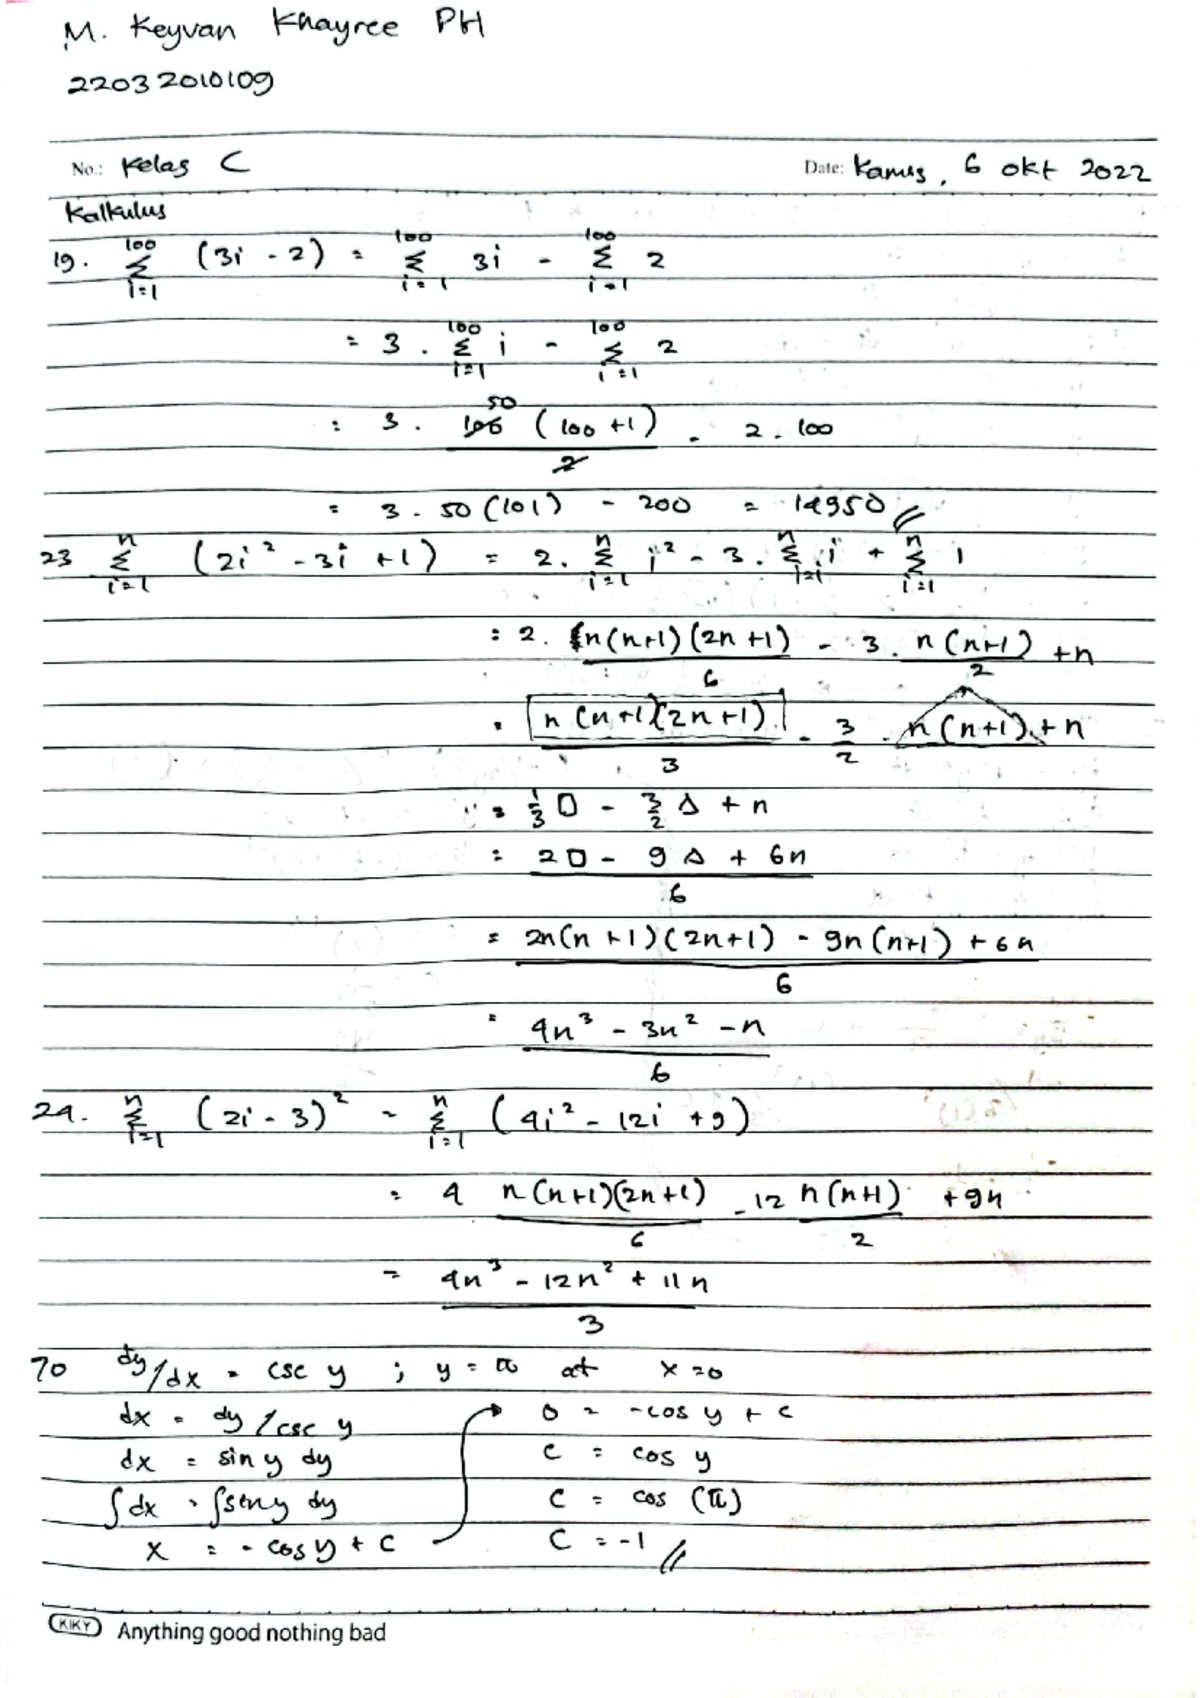 M. Keyvan Khayree PH
22032010109
No.: Kelas C Date: Kamis, 6 Okt 2022
Kalkulus
19. 100 Σ i=1 (3i - 2) = 100 Σ i=1 3i - 100 Σ i=1 2
= 3 . 100 Σ i=1 i - 100 Σ i=1 2
= 3 . 100 50 (100 + 1) / 2 - 2 . 100
= 3 . 50 (101) - 200 = 14950
23 n Σ i=1 (2i² - 3i + 1) = 2. n Σ i=1 i² - 3 . n Σ i=i i + n Σ i=1 1
= 2. n(n+1)(2n+1) / 6 - 3. n(n+1) / 2 + n
= n(n+1)(2n+1) / 3 - 3/2 . n(n+1) + n
= 1/3 □ - 3/2 Δ + n
= 2□ - 9Δ + 6n / 6
= 2n(n+1)(2n+1) - 9n(n+1) + 6n / 6
= 4n³ - 3n² - n / 6
24. n Σ i=1 (2i - 3)² = n Σ i=1 (4i² - 12i + 9)
= 4 n(n+1)(2n+1) / 6 - 12 n(n+1) / 2 + 9n
= 4n³ - 12n² + 11n / 3
70 dy/dx = csc y ; y = π at x = 0
dx = dy/csc y
dx = sin y dy
∫dx = ∫sin y dy
x = - cos y + C
0 = -cos y + c
c = cos y
C = cos (π)
C = -1
KIKY Anything good nothing bad